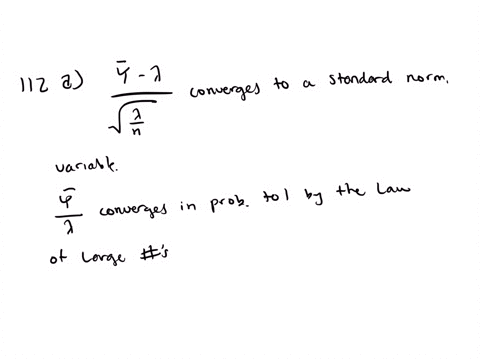 112 a) Ȳ - λ / √(λ/n) converges to a standard norm.
variable.
Ȳ/λ converges in prob. to 1 by the Law
of Large #'s